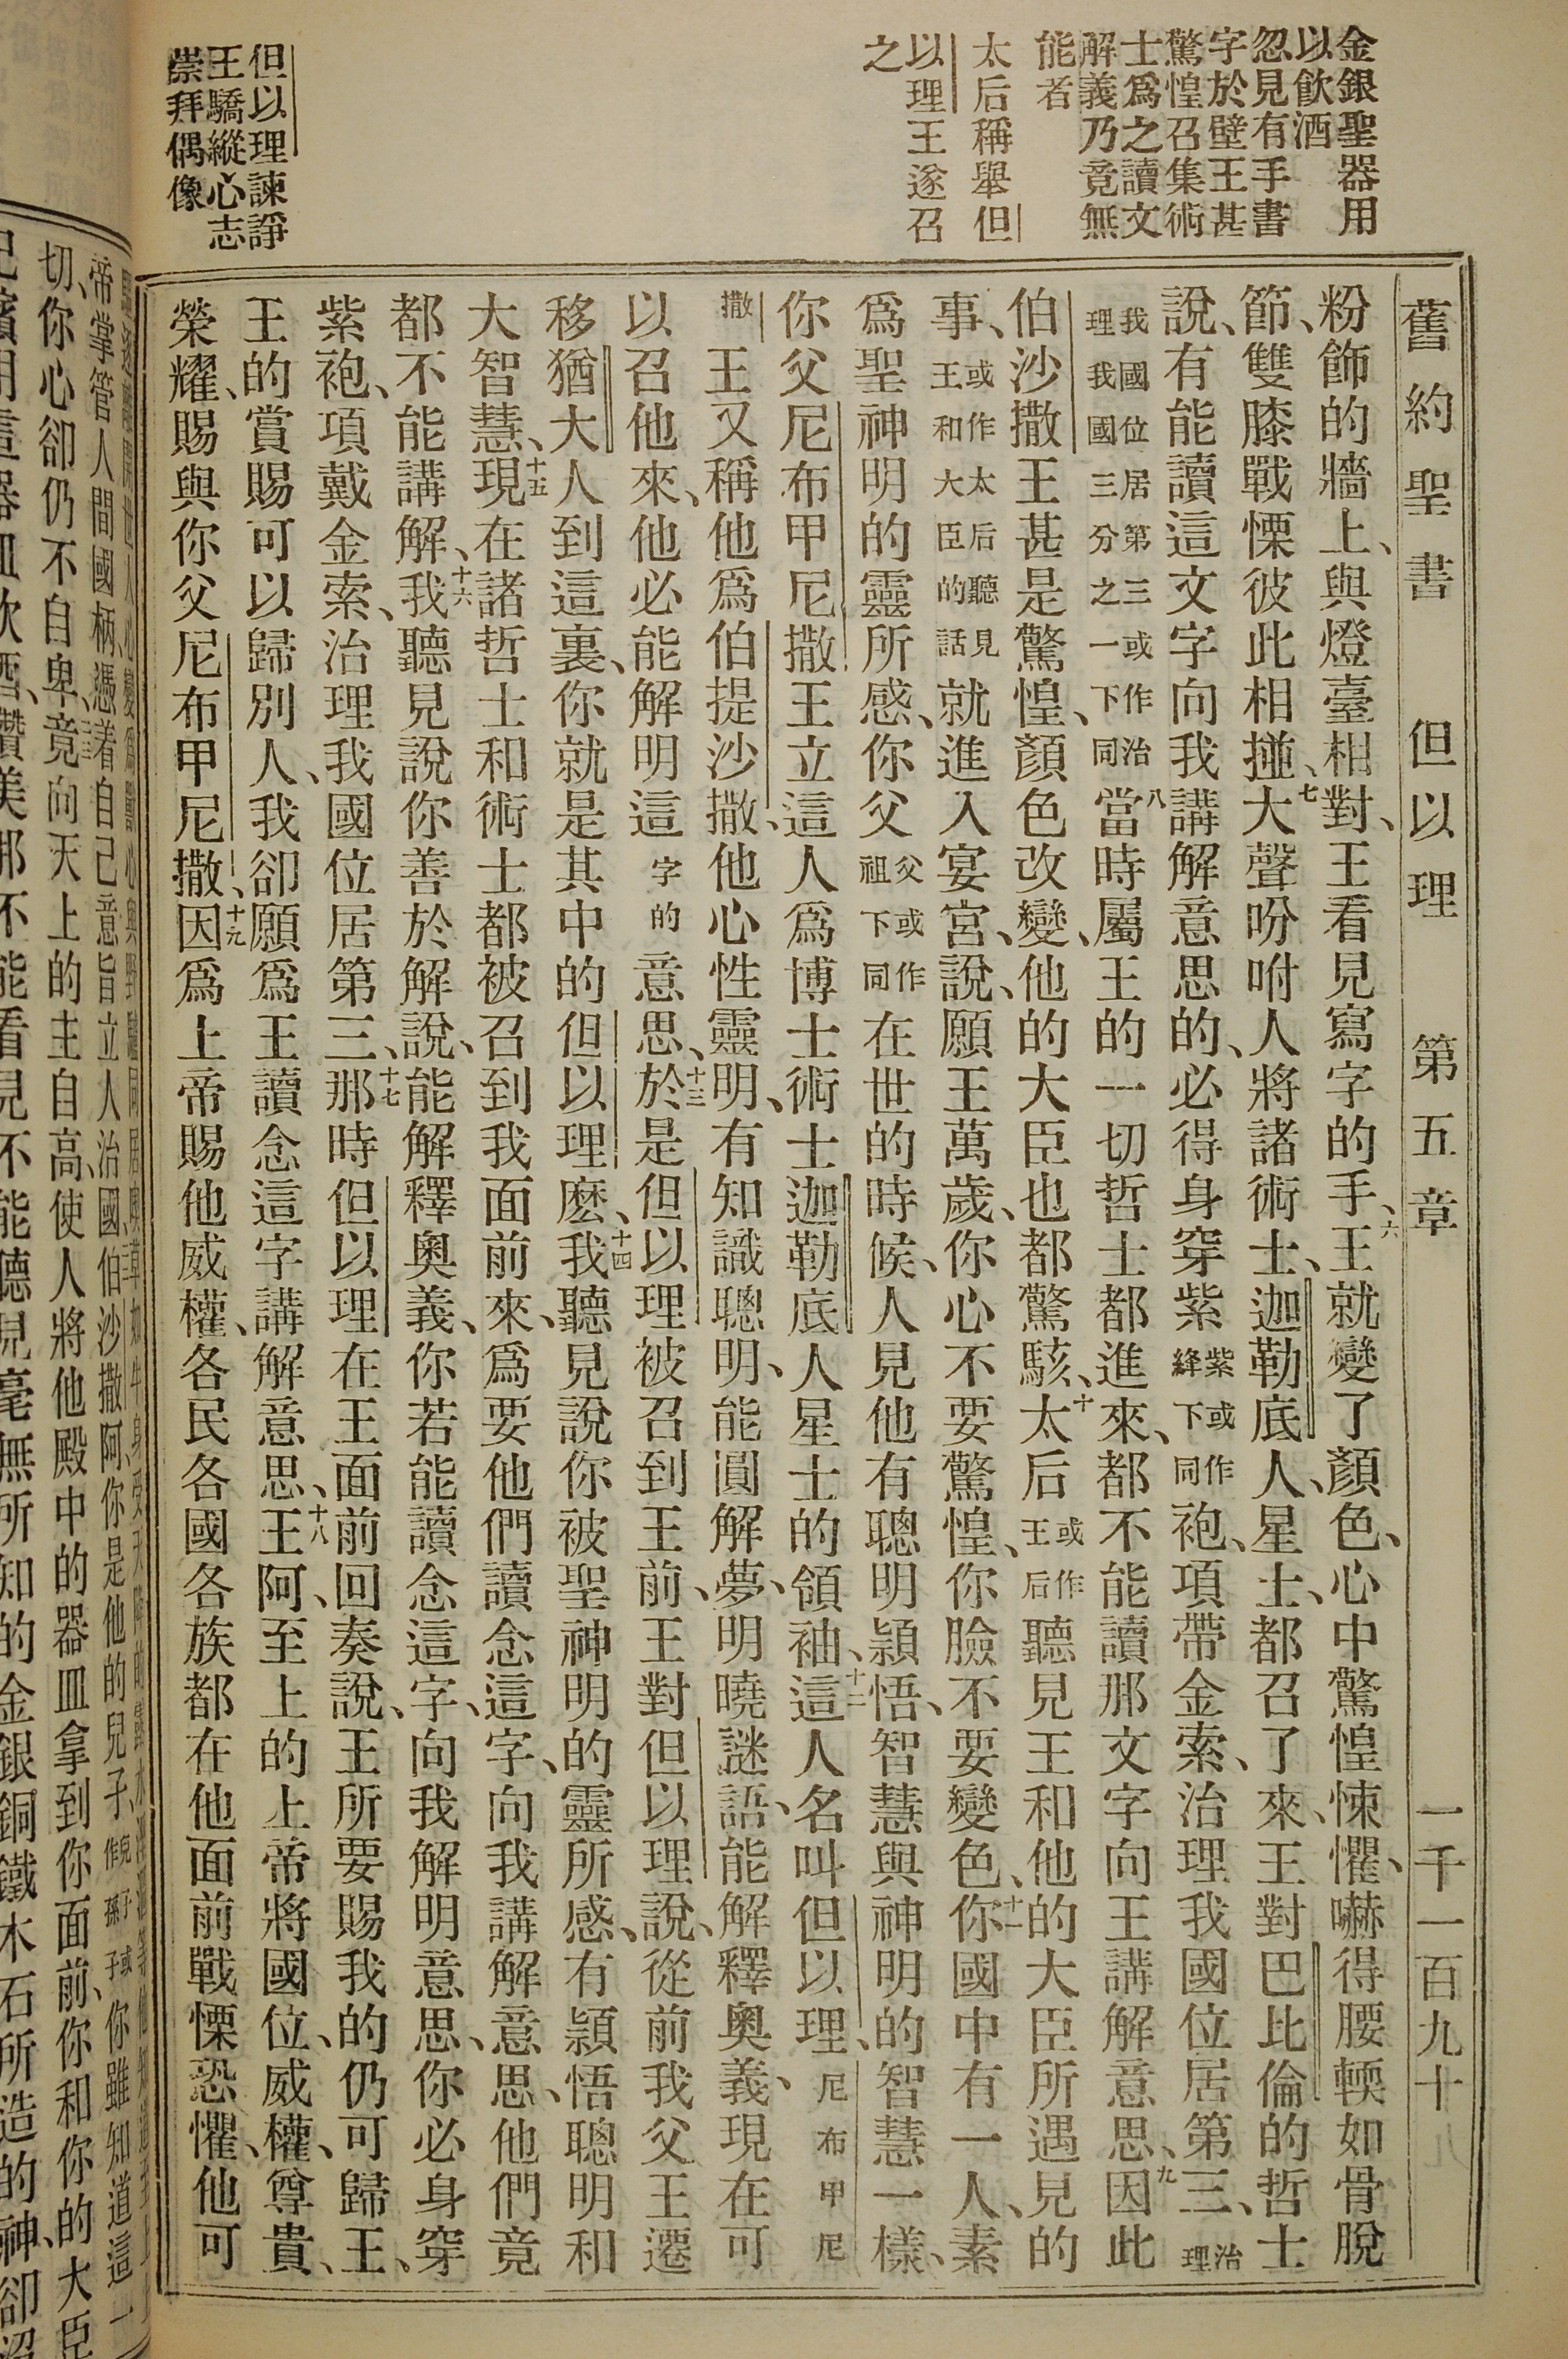 金銀聖器用
以飲酒
忽見有手書
字於壁王甚
驚惶召集術
士爲之讀文
解義乃竟無
能者
太后稱舉但
以理王遂召
之
但以理諫諍
王驕縱心志
崇拜偶像
舊約聖書 但以理 第五章 一千一百九十八
粉飾的牆上、與燈臺相對、王看見寫字的手、六王就變了顏色、心中驚惶悚懼、嚇得腰輭如骨脫
節、雙膝戰慄彼此相撞、七大聲吩咐人將諸術士、迦勒底人、星士、都召了來、王對巴比倫的哲士
說、有能讀這文字向我講解意思的、必得身穿紫紫或作絳下同袍、項帶金索、治理我國位居第三、治理
我國位居第三或作治理我國三分之一下同八當時屬王的一切哲士都進來、都不能讀那文字向王講解意思、九因此
伯沙撒王甚是驚惶、顏色改變、他的大臣也都驚駭、十太后或作王后聽見王和他的大臣所遇見的
事、或作太后聽見王和大臣的話就進入宴宮、說、願王萬歲、你心不要驚惶、你臉不要變色、十一你國中有一人、素
爲聖神明的靈所感、你父父或作祖下同在世的時候、人見他有聰明穎悟、智慧與神明的智慧一樣、
你父尼布甲尼撒王立這人爲博士術士迦勒底人星士的領袖、十二這人名叫但以理、尼布甲尼
撒王又稱他爲伯提沙撒、他心性靈明、有知識聰明、能圓解夢、明曉謎語、能解釋奧義、現在可
以召他來、他必能解明這字的意思、十三於是但以理被召到王前、王對但以理說、從前我父王遷
移猶大人到這裏、你就是其中的但以理麽、十四我聽見說你被聖神明的靈所感、有穎悟聰明和
大智慧、十五現在諸哲士和術士都被召到我面前來、爲要他們讀念這字、向我講解意思、他們竟
都不能講解、十六我聽見說你善於解說、能解釋奧義、你若能讀念這字、向我解明意思、你必身穿
紫袍、項戴金索、治理我國位居第三、十七那時但以理在王面前回奏說、王所要賜我的仍可歸王、
王的賞賜可以歸別人、我卻願爲王讀念這字講解意思、十八王阿、至上的上帝將國位、威權、尊貴、
榮耀、賜與你父尼布甲尼撒、十九因爲上帝賜他威權、各民各國各族都在他面前戰慄恐懼、他可
帝掌管人間國柄、憑着自己意旨立人治國、伯沙撒阿、你是他的兒子、兒子或作孫子你雖知道這一
切、你心卻仍不自卑、竟向天上的主自高、使人將他殿中的器皿拿到你面前、你和你的大臣